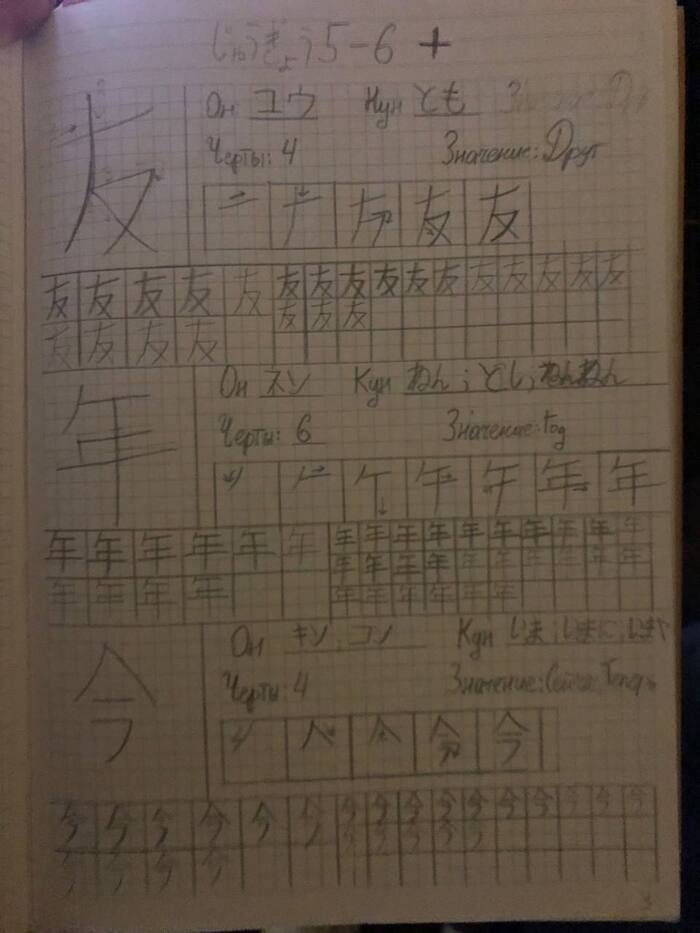 じゅうぎょう 5-6 +
友 Он ユウ Кун とも
Черты: 4 Значение: Друг
友 友
友 友 友 友 友 友 友 友 友 友 友 友 友 友 友 友
友 友 友 友 友 友 友
年 Он ネン Кун ねん; とし;
Черты: 6 Значение: год
年
年 年 年 年 年 年 年 年 年 年 年 年 年 年 年 年
年 年 年 年 年 年 年 年 年 年
年 年 年 年 年 年 年 年 年 年
今 Он キン, コン Кун いま; いまに;
Черты: 4 Значение: Сейчас, Теперь
今
今 今 今 今 今 今 今 今 今 今 今 今 今 今 今 今
今 今 今 今 今 今 今 今 今